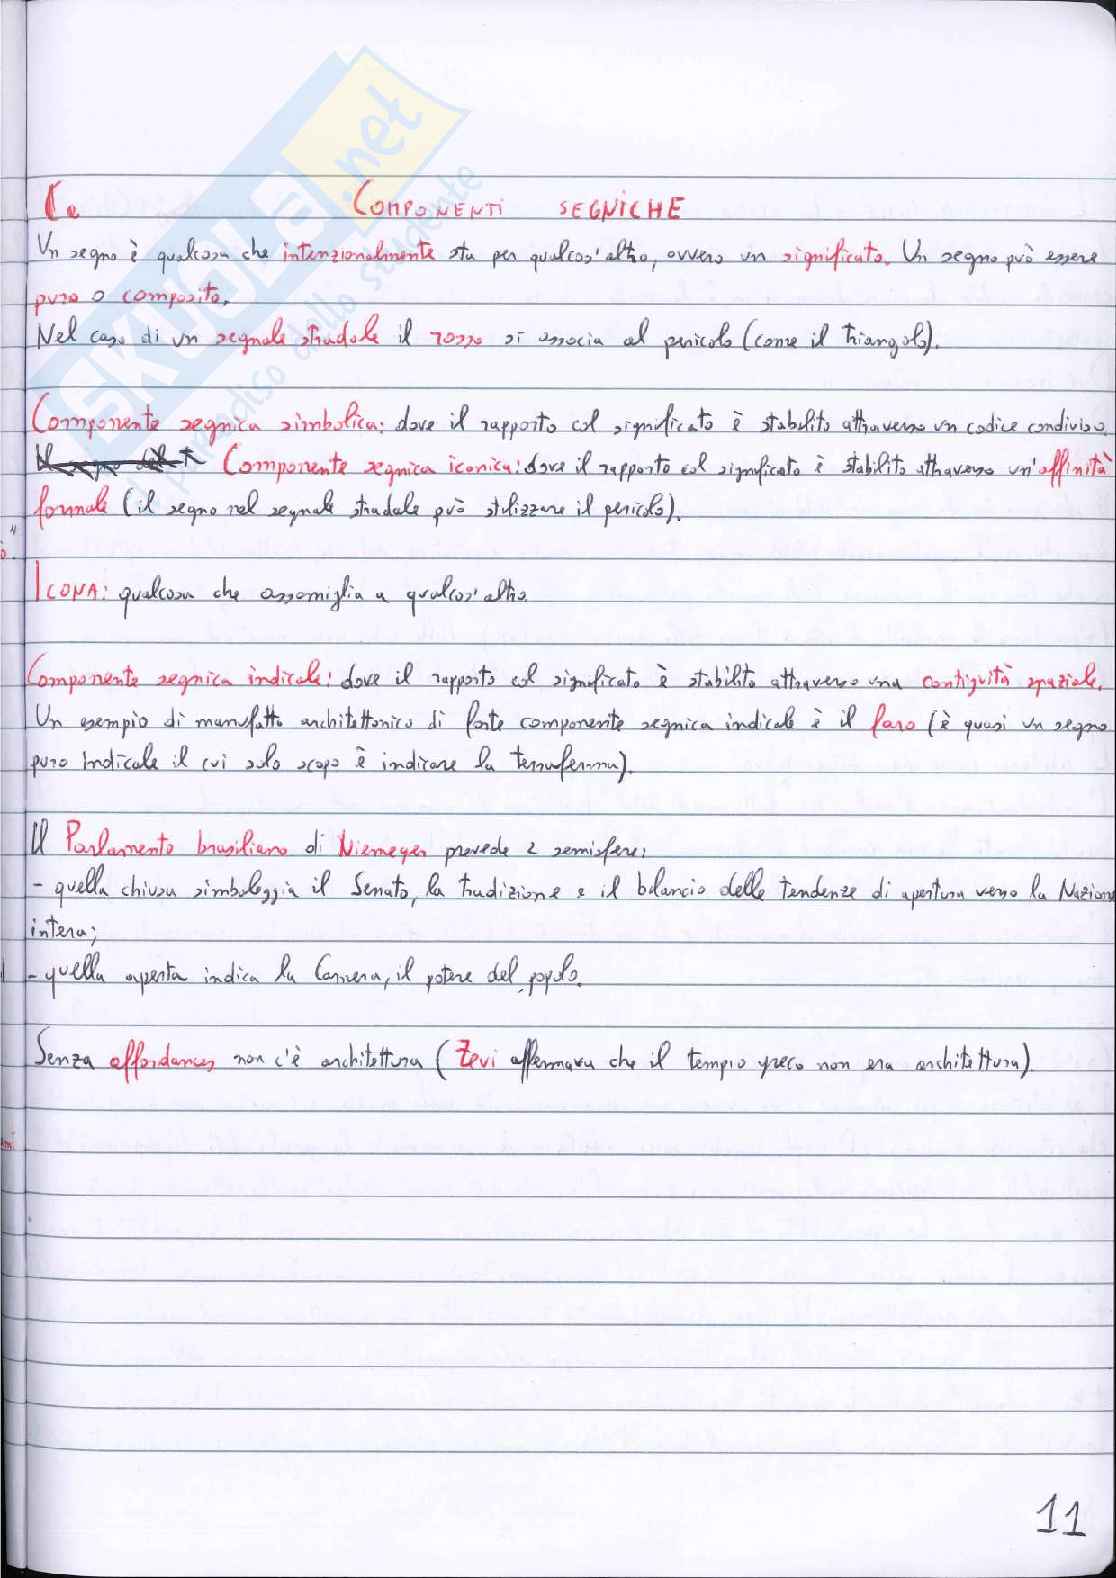 COMPONENTI SEGNICHE
Un segno è qualcosa che intenzionalmente sta per qualcos'altro, ovvero un significato. Un segno può essere
puro o composito.
Nel caso di un segnale stradale il rosso si associa al pericolo (come il triangolo).
Componente segnica simbolica: dove il rapporto col significato è stabilito attraverso un codice condiviso.
Componente segnica iconica: dove il rapporto col significato è stabilito attraverso un'affinità
formale (il segno nel segnale stradale può stilizzare il pericolo).
ICONA: qualcosa che assomiglia a qualcos'altro.
Componente segnica indicale: dove il rapporto col significato è stabilito attraverso una contiguità spaziale.
Un esempio di manufatto architettonico di forte componente segnica indicale è il faro (è quasi un segno
puro indicale il cui solo scopo è indicare la terraferma).
Il Parlamento brasiliano di Niemeyer prevede 2 semisfere:
- quella chiusa simboleggia il Senato, la tradizione e il bilancio delle tendenze di apertura verso la Nazione
intera;
- quella aperta indica la Camera, il potere del popolo.
Senza affordances non c'è architettura (Zevi affermava che il tempio greco non era architettura).
11
SKUOLA.net
paradiso dello studente